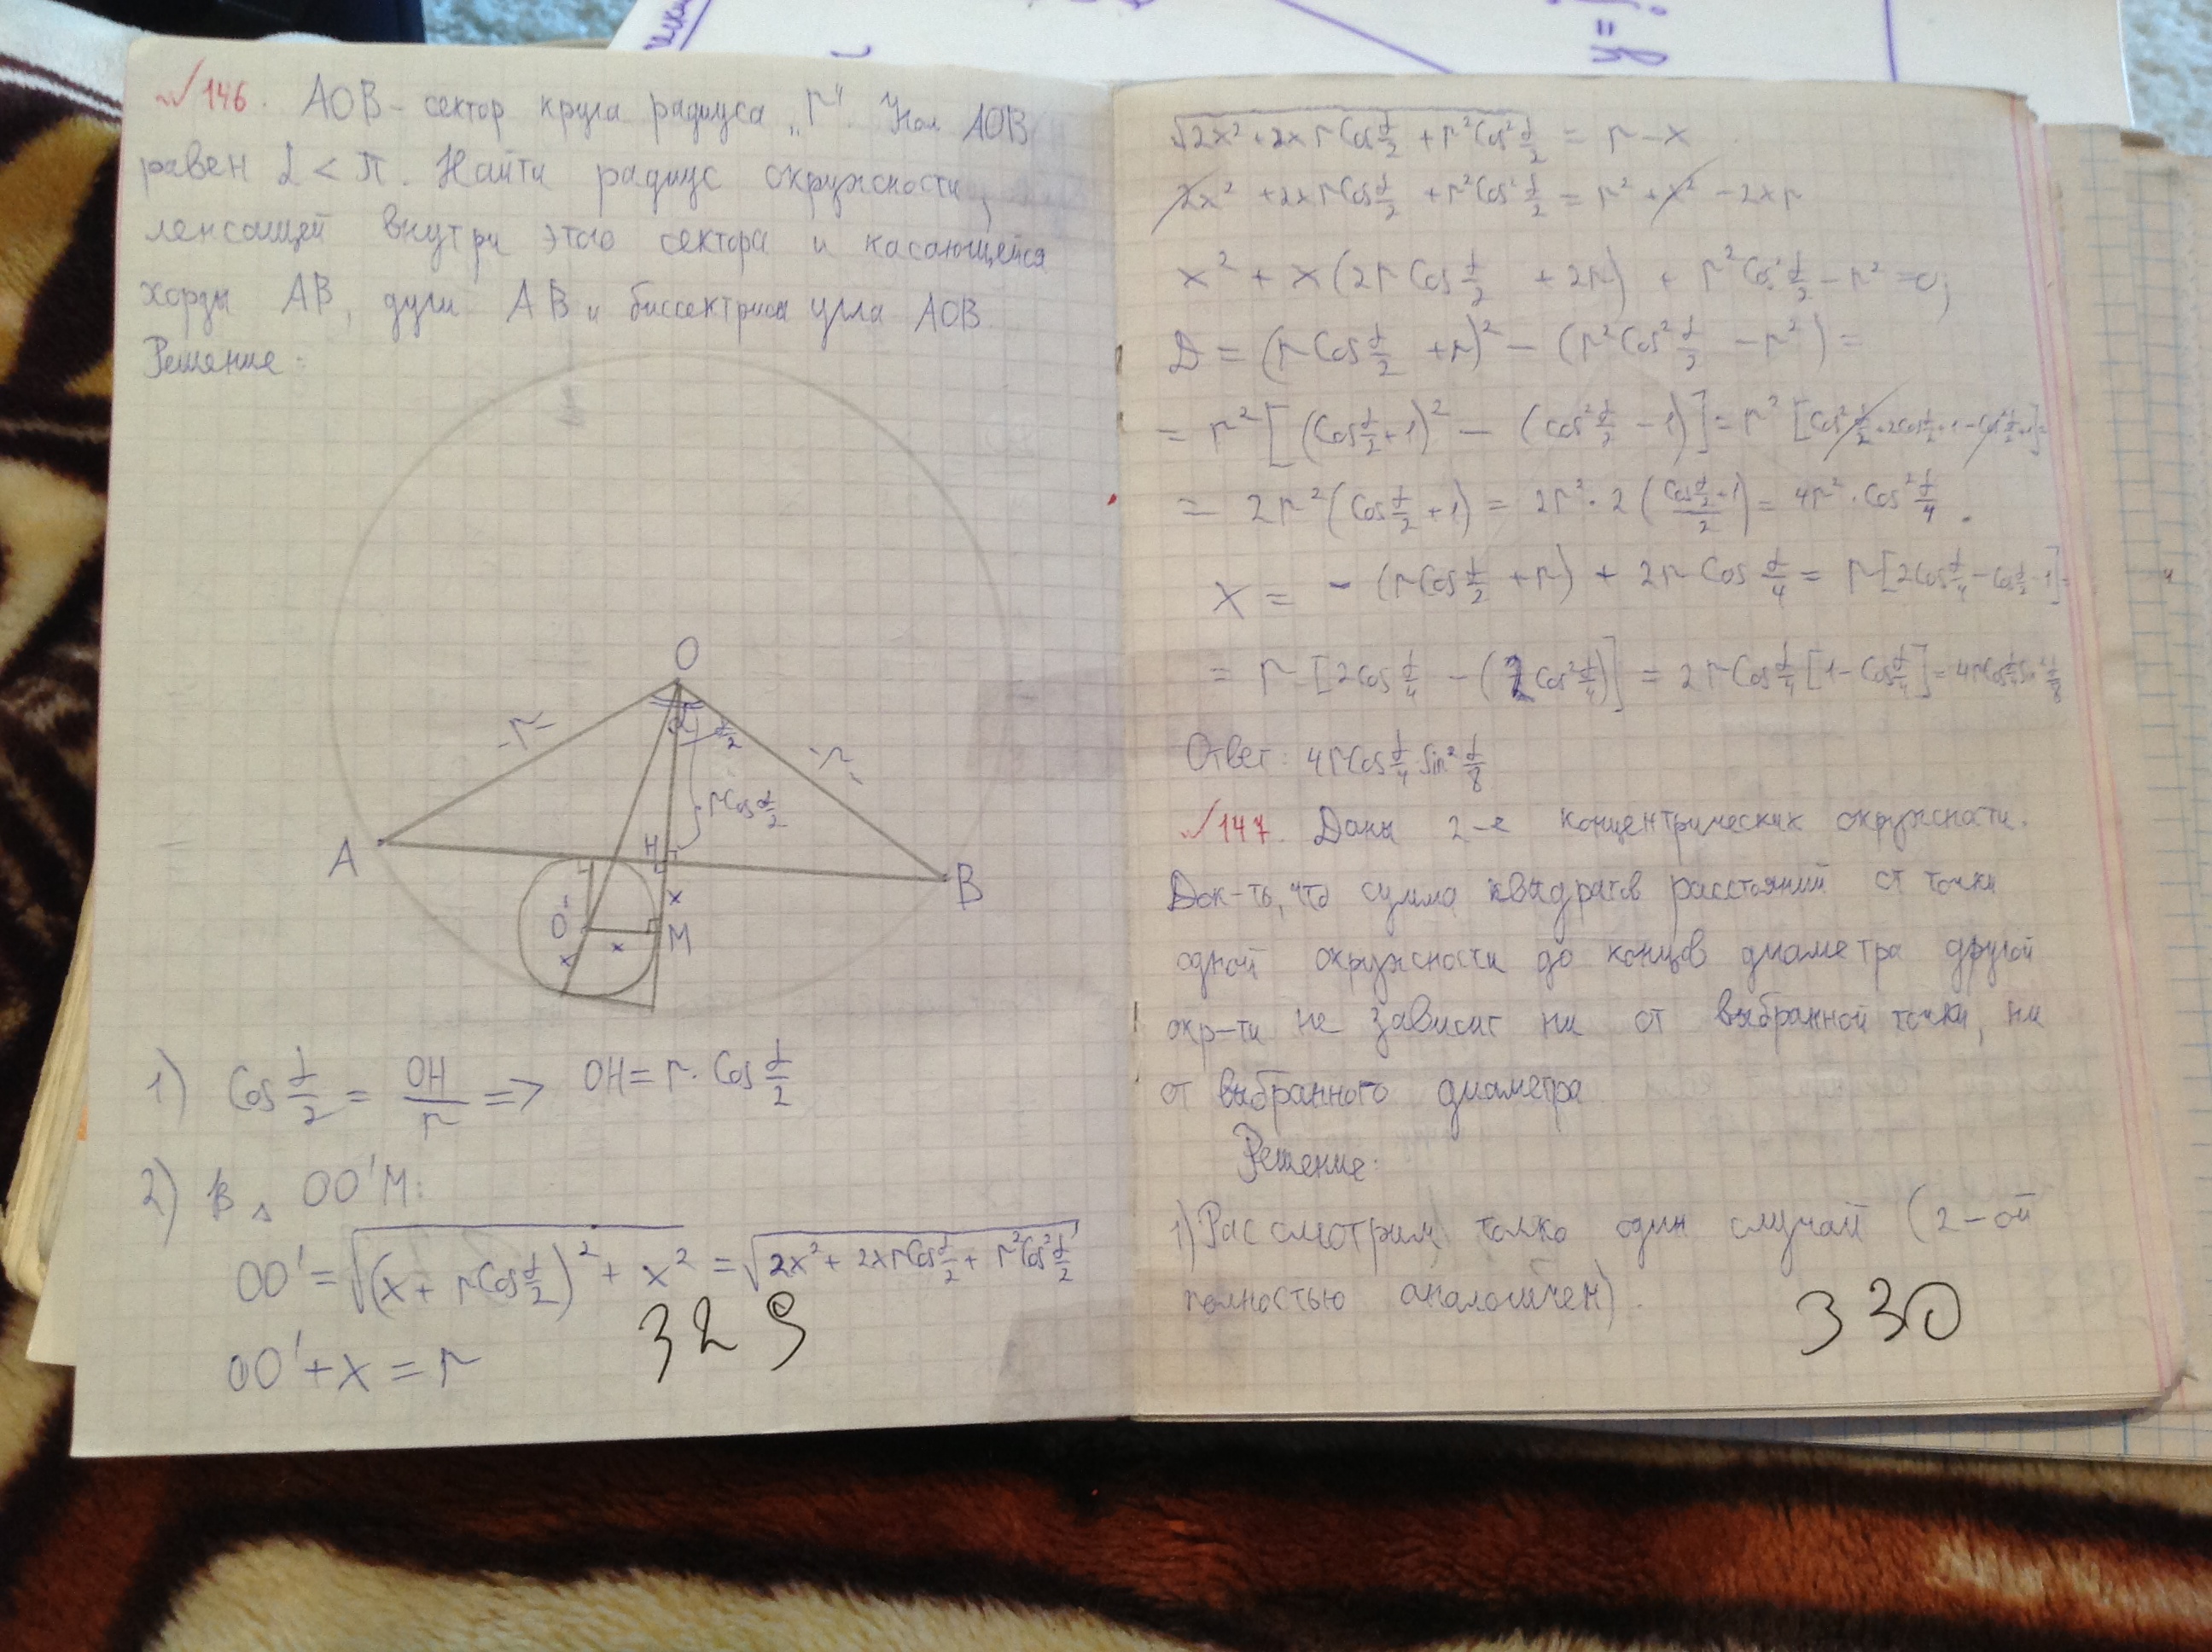 √146. АОВ - сектор круга радиуса „r". Угол АОВ
равен α < π. Найти радиус окружности,
лежащей внутри этого сектора и касающейся
хорды АВ, дуги АВ и биссектрисы угла АОВ.
Решение:
O
α
α/2
-r-
-r-
r Cos α/2
A
H
B
x
O'
M
x
x
1) Cos α/2 = OH/r => OH = r · Cos α/2
2) В △ OO'M:
OO' = √((x + r Cos α/2)² + x²) = √(2x² + 2x r Cos α/2 + r² Cos² α/2)
OO' + x = r
329
√(2x² + 2x r Cos α/2 + r² Cos² α/2) = r - x
2x² + 2x r Cos α/2 + r² Cos² α/2 = r² + x² - 2xr
x² + x(2r Cos α/2 + 2r) + r² Cos² α/2 - r² = 0;
D = (r Cos α/2 + r)² - (r² Cos² α/2 - r²) =
= r² [(Cos α/2 + 1)² - (Cos² α/2 - 1)] = r² [Cos² α/2 + 2Cos α/2 + 1 - Cos² α/2 + 1] =
= 2r² (Cos α/2 + 1) = 2r² · 2 ((Cos α/2 + 1)/2) = 4r² · Cos² α/4.
x = - (r Cos α/2 + r) + 2r Cos α/4 = r [2Cos α/4 - Cos α/2 - 1] =
= r [2Cos α/4 - (2 Cos² α/4)] = 2r Cos α/4 [1 - Cos α/4] = 4r Cos α/4 Sin² α/8
Ответ: 4r Cos α/4 Sin² α/8
√147. Даны 2-е концентрических окружности.
Док-ть, что сумма квадратов расстояний от точки
одной окружности до концов диаметра другой
окр-ти не зависит ни от выбранной точки, ни
от выбранного диаметра
Решение:
1) Рассмотрим только один случай (2-ой
полностью аналогичен).
330